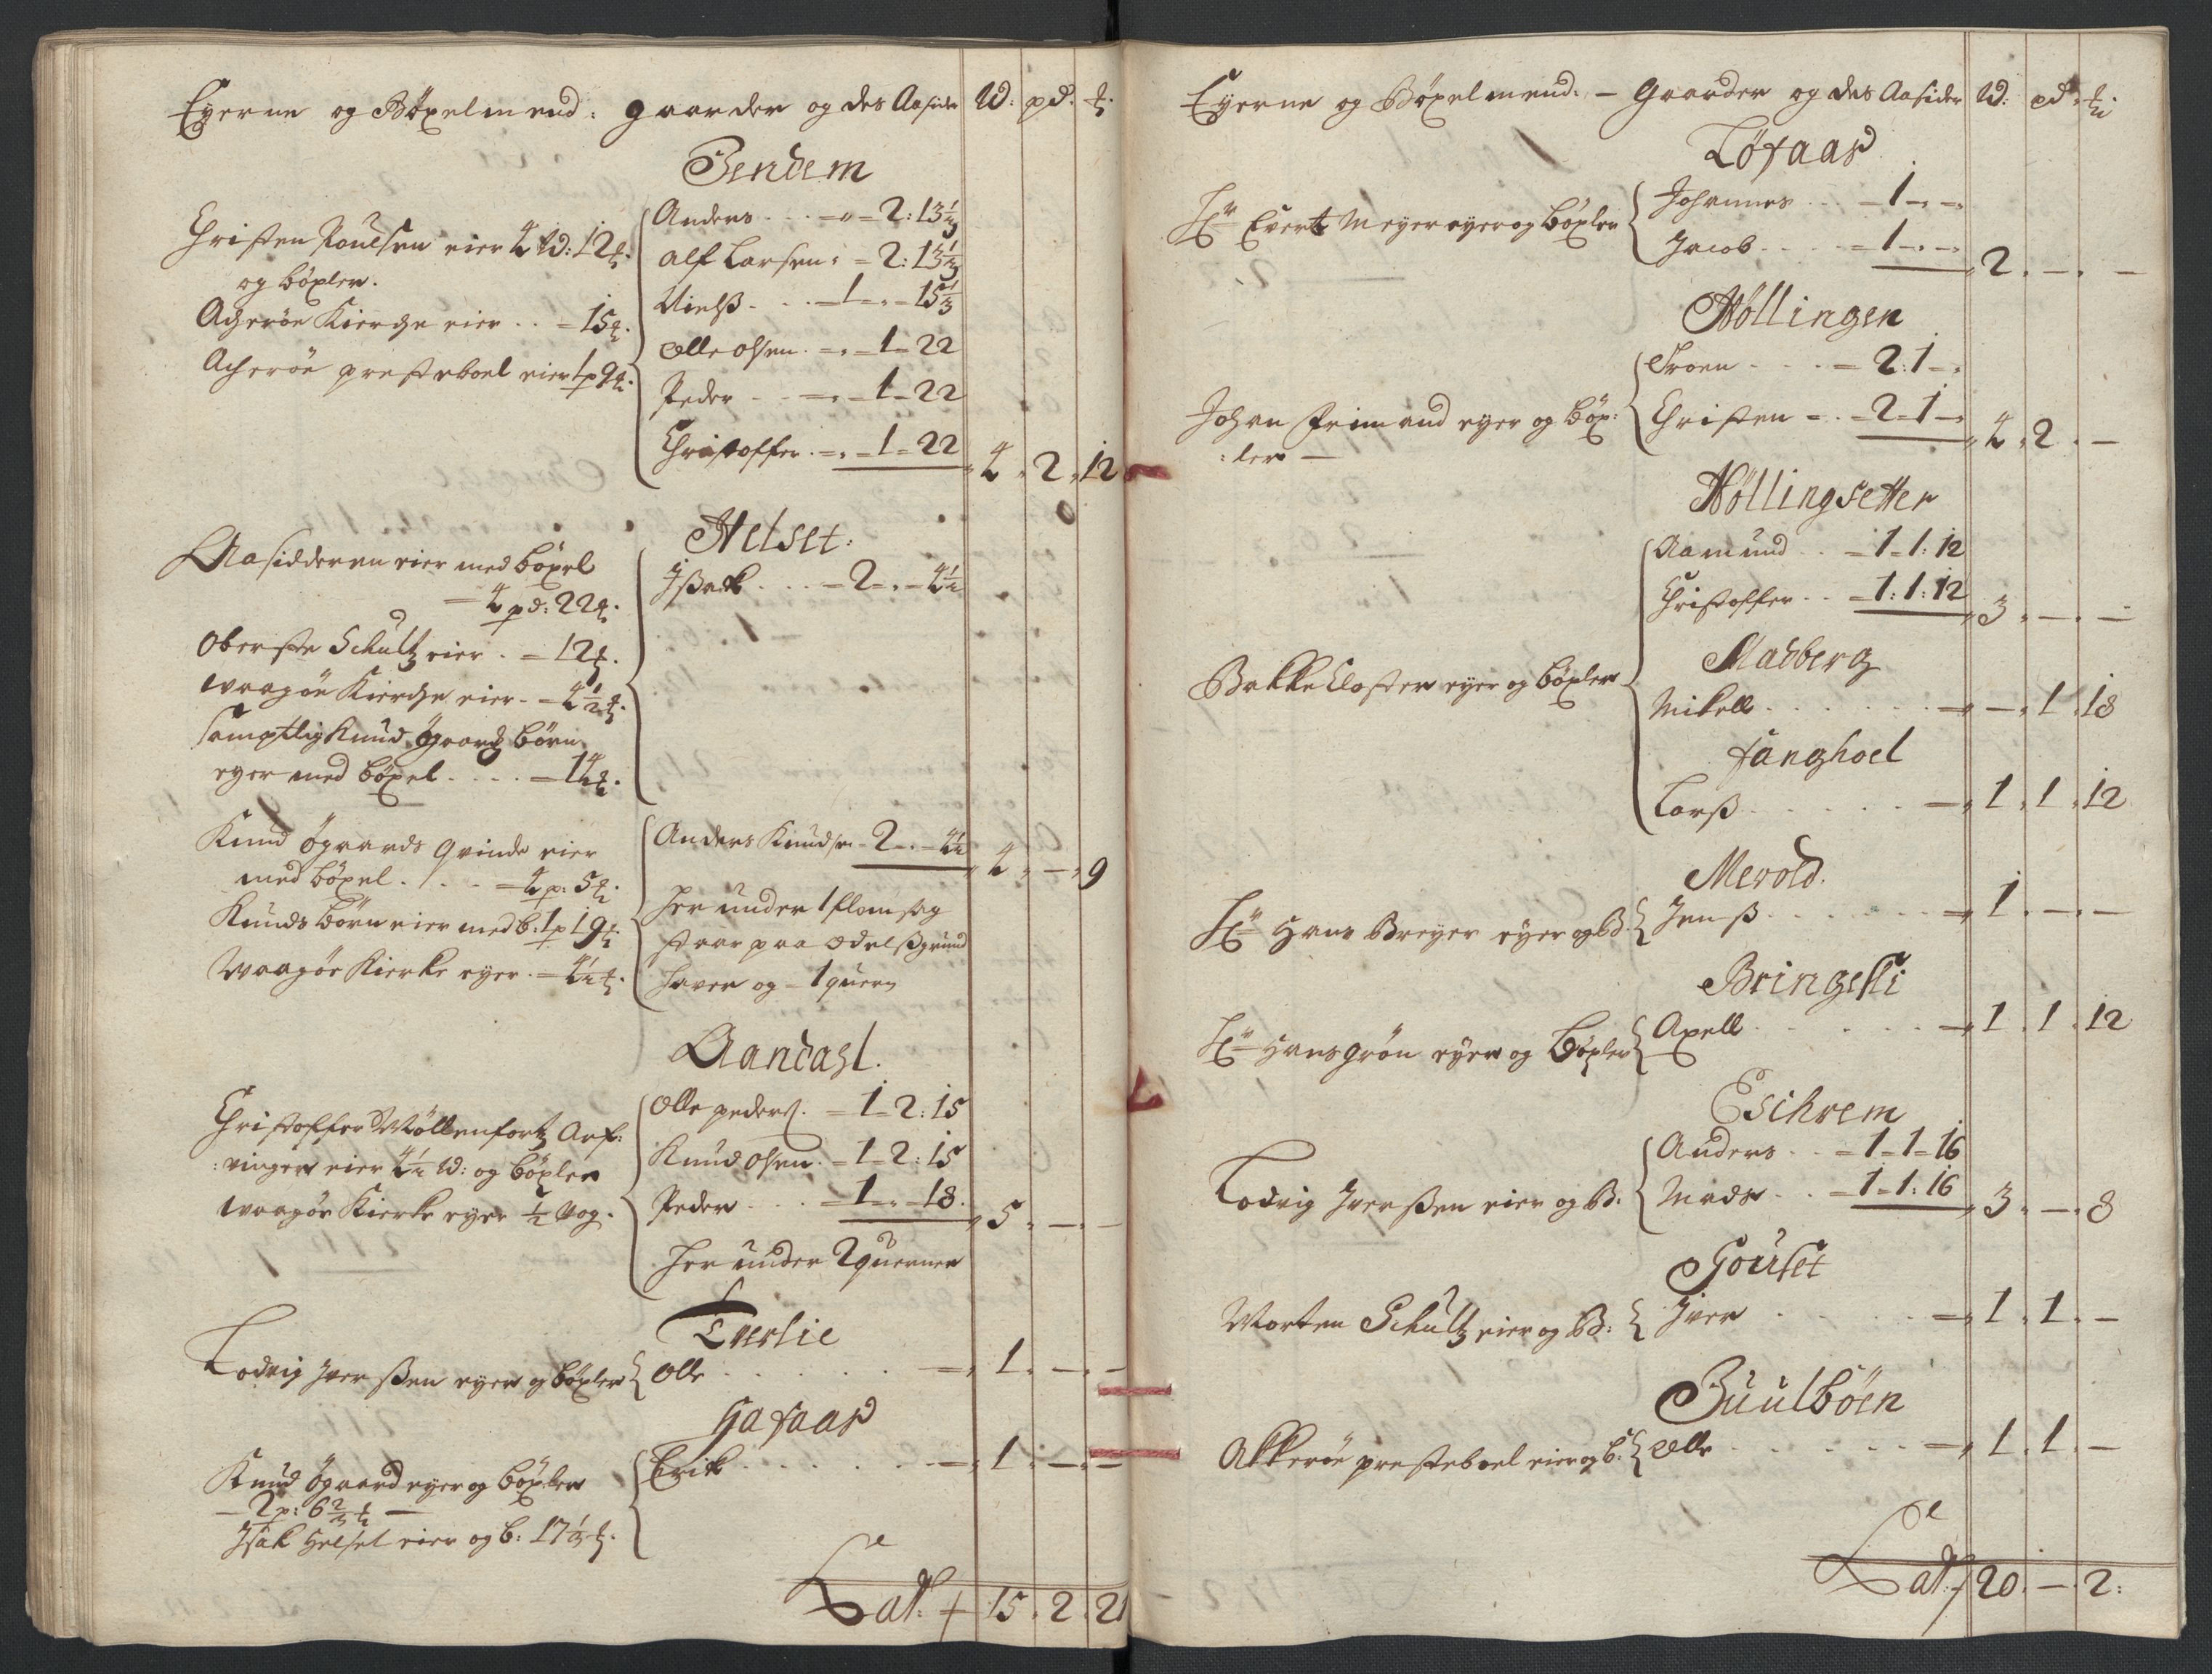 Eyerne og Böxelmend: gaarder og des Aasider W: pd: ꝉ:
Bendem
Christen Poulsen eier 4 W: 12 ꝉ:
og böxler.
Acheröe Kierche eier . . = 15 ꝉ:
Acheröe presteboel eier 1 p 9 ꝉ:
Anders . . . = " = 2: 13 1/3
Alf Larsen . = 2: 13 1/3
Nielß . . . - 1 - " - 15 1/3
Olle Olsen . = . = 1 = 22
Peder . . = . = 1 - 22
Christoffer . = . = 1 = 22 4 . 2 . 12
Helset:
Aasidderen eier med böxel
= 4 pd: 22 ꝉ:
Oberste Schultz eier . = 12 ꝉ.
Waagöe Kierche eier - = 4 1/2 ꝉ.
Samptlig Knud Ögaards börn
eyer med böxel . . . . = 14 ꝉ.
Jßak . . . . = 2 - . - 4 1/2
Knud Ögaards Qvinde eier
med böxel . . . = 4 p: 5 ꝉ.
Knuds börn eier med b: 1 p 19 ꝉ
Waagöe Kierke eyer . = 4 1/2 ꝉ.
Anders Knudsen - 2 - . - 4 1/2 4 . - . 9
her under 1 flomsag
staar paa Odelßgrund
haver og - 1 quern
Aandahl.
Christoffer Möllenfortz Arf:
:vinger eier 4 1/2 W: og böxler
Waagöe Kierke eyer 1/2 Wog.
Olle peders. = 1 = 2: 15
Knud Olsen . = 1 = 2: 15
Peder . . . = 1 - . - 18. 5 . - . -
her under 2 querner
Everlie
Lodvig Iverßen eyer og böxler Olle . . . . . . = 1 . - . -
Hafaas
Knud Ögaard eyer og böxler
- 2 p: 6 2/3 ꝉ -
Isak Helset eier og b: 17 1/3 ꝉ.
Erik . . . . . . = 1 . - . -
Lat: 15 . 2 . 21
Eyerne og Böxelmend: - Gaarder og des Aasider W: pd. ꝉ:
Löfaas
Hr Evert Meyer eyer og böxler
Johannes . . . = 1 - . -
Jacob . . . . = 1 - . - 2 . - . -
Höllingen
Johan Frimand eyer og böx:
:ler -
Troen . . . . = 2: 1 - .
Christen = . . = 2 = 1 - . 4 . 2 . -
Höllingsetter
Aamund . . = 1 = 1: 12
Christoffer . . = 1: 1: 12 3 . - . -
Madberg
Bakke Closter eyer og böxler
Mikell . . . . . . . = - . 1 . 18
Fanghoel
Larß . . . . . . = 1 . 1 . 12
Merold.
Hr Hans Breyer eyer og B. Jenß . . . . . . = 1 . - . -
Bringesli
Hr Hans Grön eyer og böxler Axell . . . . . . = 1 . 1 . 12
Eschrem
Lodvig Iverßen eier og B:
Anders . . = 1 = 1 = 16
Mads . . = 1 = 1: 16 3 . - . 8
Gouset
Morten Schultz eier og B: Iver . . . . . = 1 . 1 . -
Buulböen
Akkeröe presteboel eier og b. Olle . . . . . . = 1 . 1 . -
Lat: 20 . - . 2: